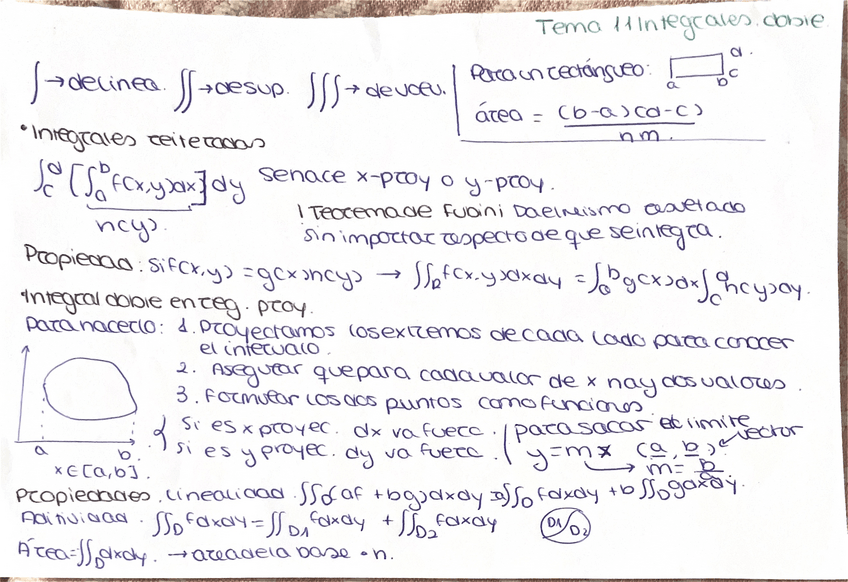 Tema 11 Integrales doble.
∫ → de línea. ∬ → de sup. ∭ → de volu.
Para un rectángulo: a b c d
área = (b-a)(d-c) / nm.
• Integrales reiteradas
∫_c^d [∫_a^b f(x,y)dx] dy se hace x-proy o y-proy.
h(y)
! Teorema de Fubini Da el mismo resultado
sin importar respecto de que se integra.
Propiedad: si f(x,y) = g(x)h(y) → ∬_R f(x,y)dxdy = ∫_a^b g(x)dx ∫_c^d h(y)dy.
• Integral doble en reg. proy.
Para hacerlo: 1. Proyectamos los extremos de cada lado para conocer
el intervalo.
2. Asegurar que para cada valor de x hay dos valores.
3. Formular los dos puntos como funciones.
a b
x∈[a,b].
{ Si es x proyec. dx va fuera.
si es y proyec. dy va fuera.
para sacar el límite
y = mx (a, b) ← vector
m = b/a
Propiedades. Linealidad. ∬_D (af + bg)dxdy = a∬_D fdxdy + b∬_D gdxdy.
Aditividad. ∬_D fdxdy = ∬_D1 fdxdy + ∬_D2 fdxdy D1/D2
Área = ∬_D dxdy. → area de la base · h.